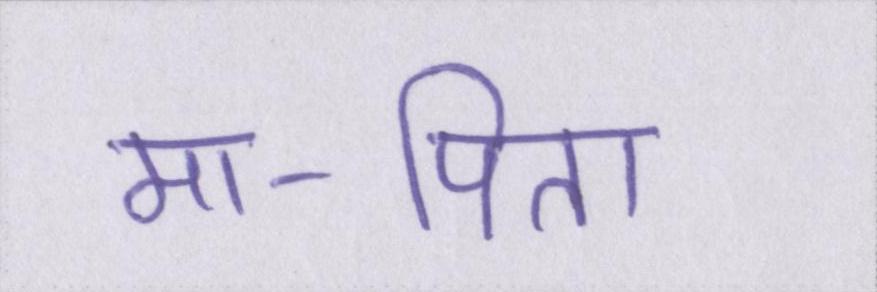 मा-पिता